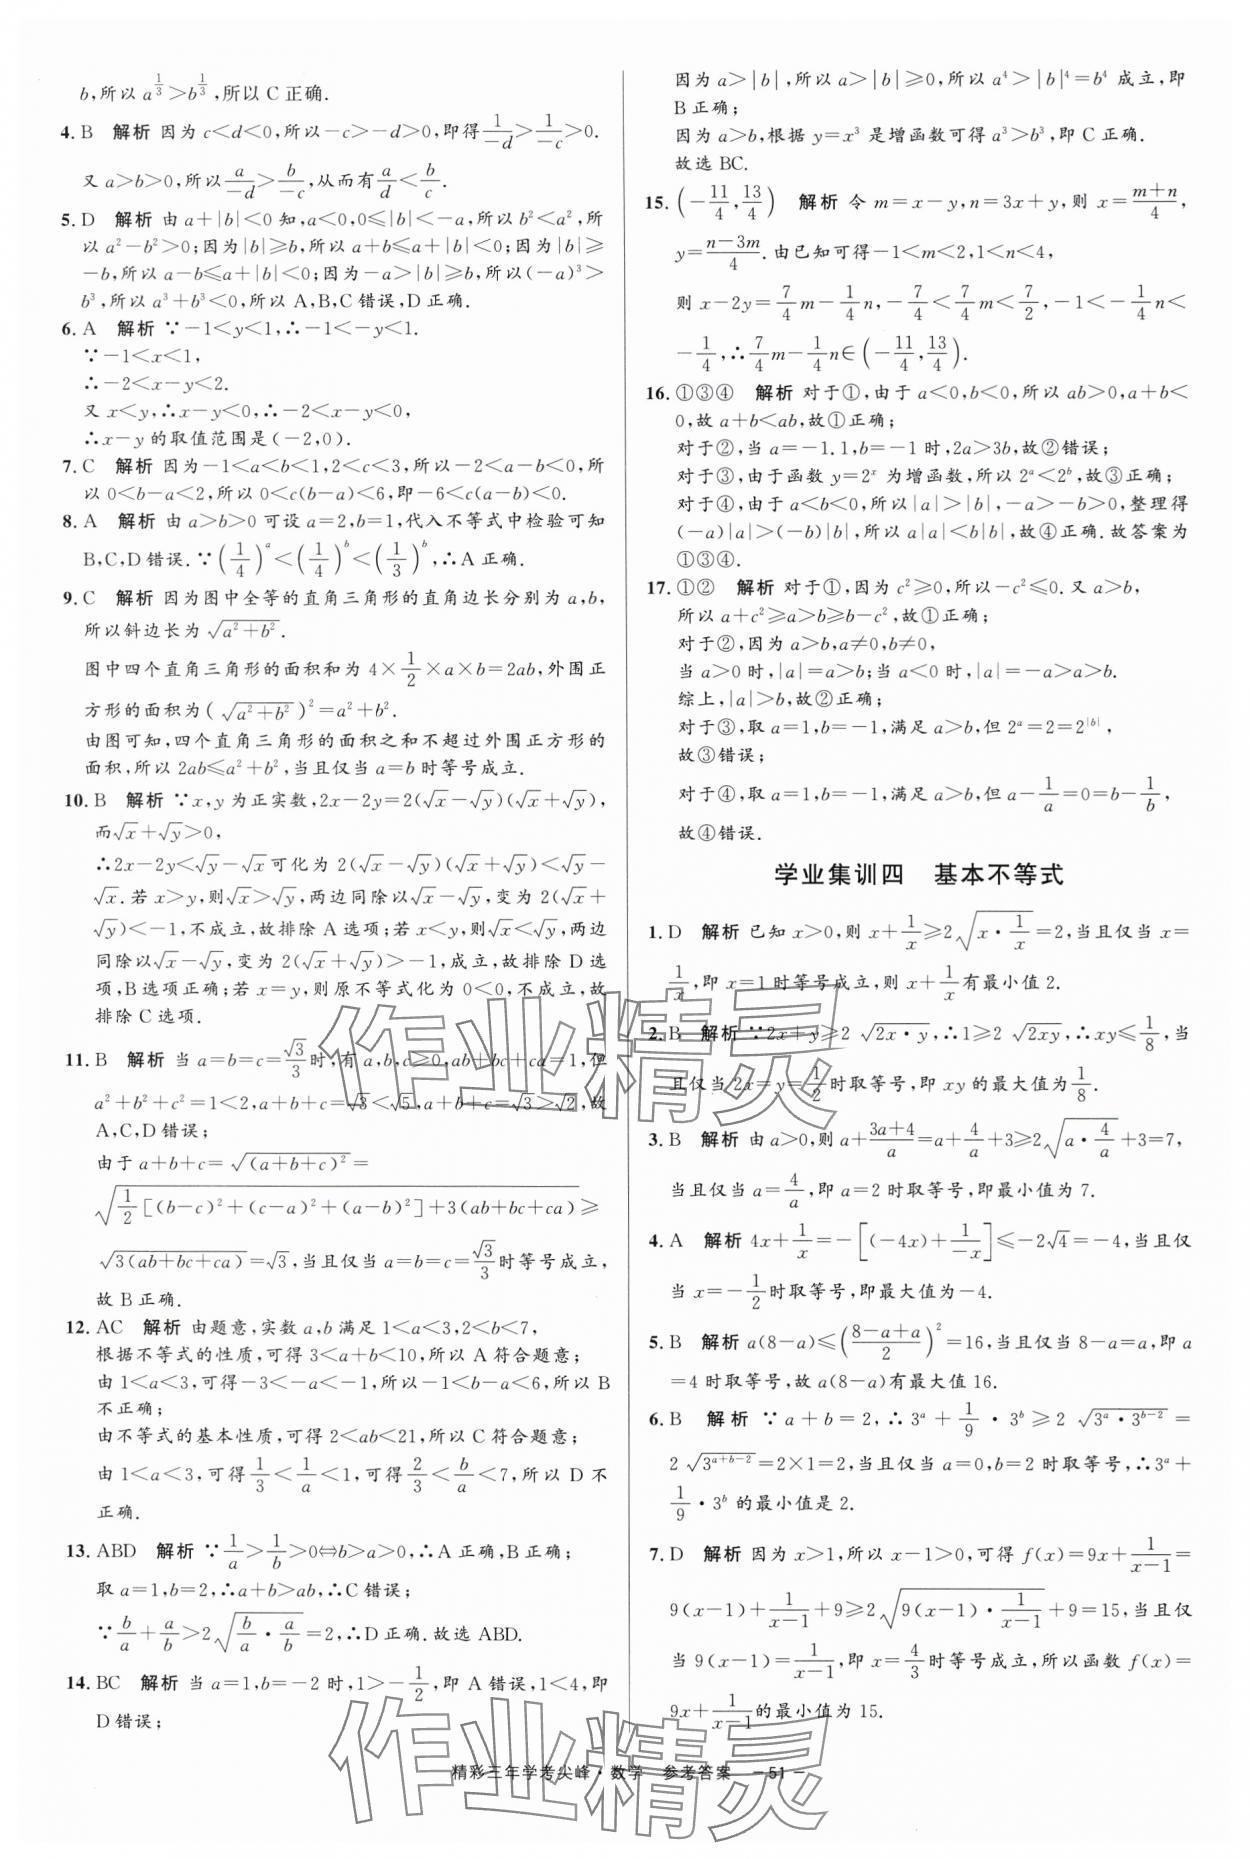 b,所以 a^{1/3}>b^{1/3},所以 C 正确.
4. B 解析 因为 c<d<0,所以-c>-d>0,即得1/(-d)>1/(-c)>0.
又 a>b>0,所以a/(-d)>b/(-c),从而有a/d<b/c.
5. D 解析 由 a+|b|<0 知,a<0,0≤|b|<-a,所以 b²<a²,所
以 a²-b²>0;因为|b|≥b,所以 a+b≤a+|b|<0;因为|b|≥
-b,所以 a-b≤a+|b|<0;因为-a>|b|≥b,所以(-a)³>
b³,所以 a³+b³<0,所以 A,B,C 错误,D 正确.
6. A 解析 ∵-1<y<1,∴-1<-y<1.
∵-1<x<1,
∴-2<x-y<2.
又 x<y,∴x-y<0,∴-2<x-y<0,
∴x-y 的取值范围是(-2,0).
7. C 解析 因为-1<a<b<1,2<c<3,所以-2<a-b<0,所
以 0<b-a<2,所以 0<c(b-a)<6,即-6<c(a-b)<0.
8. A 解析 由 a>b>0 可设 a=2,b=1,代入不等式中检验可知
B,C,D 错误.∵(1/4)^a<(1/4)^b<(1/3)^b,∴A 正确.
9. C 解析 因为图中全等的直角三角形的直角边长分别为 a,b,
所以斜边长为 √(a²+b²).
图中四个直角三角形的面积和为 4×1/2×a×b=2ab,外围正
方形的面积为(√(a²+b²))²=a²+b².
由图可知,四个直角三角形的面积之和不超过外围正方形的
面积,所以 2ab≤a²+b²,当且仅当 a=b 时等号成立.
10. B 解析 ∵x,y 为正实数,2x-2y=2(√x-√y)(√x+√y),
而√x+√y>0,
∴2x-2y<√y-√x可化为 2(√x-√y)(√x+√y)<√y-
√x.若 x>y,则√x>√y,两边同除以√x-√y,变为 2(√x+
√y)<-1,不成立,故排除 A 选项;若 x<y,则√x<√y,两边
同除以√x-√y,变为 2(√x+√y)>-1,成立,故排除 D 选
项,B 选项正确;若 x=y,则原不等式化为 0<0,不成立,故
排除 C 选项.
11. B 解析 当 a=b=c=√3/3时,有 a,b,c≥0,ab+bc+ca=1,但
a²+b²+c²=1<2,a+b+c=√3<√5,a+b+c=√3>√2,故
A,C,D 错误;
由于 a+b+c=√((a+b+c)²)=
√(1/2[(b-c)²+(c-a)²+(a-b)²]+3(ab+bc+ca))≥
√(3(ab+bc+ca))=√3,当且仅当 a=b=c=√3/3时等号成立,
故 B 正确.
12. AC 解析 由题意,实数 a,b 满足 1<a<3,2<b<7,
根据不等式的性质,可得 3<a+b<10,所以 A 符合题意;
由 1<a<3,可得-3<-a<-1,所以-1<b-a<6,所以 B
不正确;
由不等式的基本性质,可得 2<ab<21,所以 C 符合题意;
由 1<a<3,可得1/3<1/a<1,可得2/3<b/a<7,所以 D 不
正确.
13. ABD 解析 ∵1/a>1/b>0⇔b>a>0,∴A 正确,B 正确;
取 a=1,b=2,∴a+b>ab,∴C 错误;
∵b/a+a/b>2√(b/a·a/b)=2,∴D 正确.故选 ABD.
14. BC 解析 当 a=1,b=-2 时,1>-1/2,即 A 错误,1<4,即
D 错误;
因为 a>|b|,所以 a>|b|≥0,所以 a⁴>|b|⁴=b⁴ 成立,即
B 正确;
因为 a>b,根据 y=x³ 是增函数可得 a³>b³,即 C 正确.
故选 BC.
15. (-11/4,13/4) 解析 令 m=x-y,n=3x+y,则 x=(m+n)/4,
y=(n-3m)/4.由已知可得-1<m<2,1<n<4,
则 x-2y=7/4m-1/4n,-7/4<7/4m<7/2,-1<-1/4n<
-1/4,∴7/4m-1/4n∈(-11/4,13/4).
16. ①③④ 解析 对于①,由于 a<0,b<0,所以 ab>0,a+b<
0,故 a+b<ab,故①正确;
对于②,当 a=-1.1,b=-1 时,2a>3b,故②错误;
对于③,由于函数 y=2^x 为增函数,所以 2^a<2^b,故③正确;
对于④,由于 a<b<0,所以|a|>|b|,-a>-b>0,整理得
(-a)|a|>(-b)|b|,所以 a|a|<b|b|,故④正确.故答案为
①③④.
17. ①② 解析 对于①,因为 c²≥0,所以-c²≤0.又 a>b,
所以 a+c²≥a>b≥b-c²,故①正确;
对于②,因为 a>b,a≠0,b≠0,
当 a>0 时,|a|=a>b;当 a<0 时,|a|=-a>a>b.
综上,|a|>b,故②正确;
对于③,取 a=1,b=-1,满足 a>b,但 2^a=2=2^{|b|},
故③错误;
对于④,取 a=1,b=-1,满足 a>b,但 a-1/a=0=b-1/b,
故④错误.
学业集训四 基本不等式
1. D 解析 已知 x>0,则 x+1/x≥2√(x·1/x)=2,当且仅当 x=
1/x,即 x=1 时等号成立,则 x+1/x有最小值 2.
2. B 解析 ∵2x+y≥2 √(2x·y),∴1≥2 √(2xy),∴xy≤1/8,当
且仅当 2x=y=1/2时取等号,即 xy 的最大值为1/8.
3. B 解析 由 a>0,则 a+(3a+4)/a=a+4/a+3≥2√(a·4/a)+3=7,
当且仅当 a=4/a,即 a=2 时取等号,即最小值为 7.
4. A 解析 4x+1/x=-[(-4x)+1/(-x)]≤-2√4=-4,当且仅
当 x=-1/2时取等号,即最大值为-4.
5. B 解析 a(8-a)≤((8-a+a)/2)²=16,当且仅当 8-a=a,即 a
=4 时取等号,故 a(8-a)有最大值 16.
6. B 解析 ∵a+b=2,∴3^a+1/9·3^b≥2 √(3^a·3^{b-2})=
2 √(3^{a+b-2})=2×1=2,当且仅当 a=0,b=2 时取等号,∴3^a+
1/9·3^b 的最小值是 2.
7. D 解析 因为 x>1,所以 x-1>0,可得 f(x)=9x+1/(x-1)=
9(x-1)+1/(x-1)+9≥2√(9(x-1)·1/(x-1))+9=15,当且仅
当 9(x-1)=1/(x-1),即 x=4/3时等号成立,所以函数 f(x)=
9x+1/(x-1)的最小值为 15.
精彩三年学考尖峰·数学 参考答案 -51-
作业精灵
作业精灵